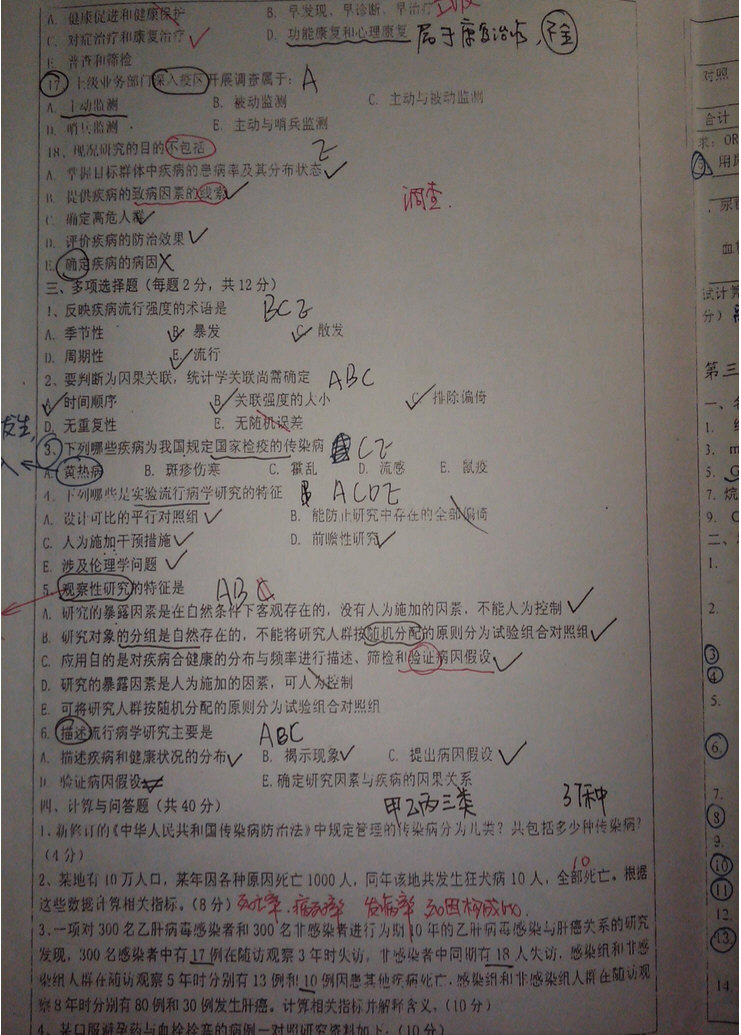 A. 健康促进和健康保护 B. 早发现、早诊断、早治疗
C. 对症治疗和康复治疗 D. 功能康复和心理康复 属于康复治疗,不全
E. 普查和筛检
17、上级业务部门深入疫区开展调查属于: A
A. 主动监测 B. 被动监测 C. 主动与被动监测
D. 哨兵监测 E. 主动与哨兵监测
18、现况研究的目的不包括 E
A. 掌握目标群体中疾病的患病率及其分布状态
B. 提供疾病的致病因素的线索 调查.
C. 确定高危人群
D. 评价疾病的防治效果
E. 确定疾病的病因
三、多项选择题(每题2分,共12分)
1、反映疾病流行强度的术语是 BCE
A. 季节性 B. 暴发 C. 散发
D. 周期性 E. 流行
2、要判断为因果关联,统计学关联尚需确定 ABC
A. 时间顺序 B. 关联强度的大小 C. 排除偏倚
D. 无重复性 E. 无随机误差
3、下列哪些疾病为我国规定国家检疫的传染病 CE
A. 黄热病 B. 斑疹伤寒 C. 霍乱 D. 流感 E. 鼠疫
4、下列哪些是实验流行病学研究的特征 ACDE
A. 设计可比的平行对照组 B. 能防止研究中存在的全部偏倚
C. 人为施加干预措施 D. 前瞻性研究
E. 涉及伦理学问题
5、观察性研究的特征是 ABC
A. 研究的暴露因素是在自然条件下客观存在的,没有人为施加的因素,不能人为控制
B. 研究对象的分组是自然存在的,不能将研究人群按随机分配的原则分为试验组合对照组
C. 应用目的是对疾病合健康的分布与频率进行描述、筛检和验证病因假设
D. 研究的暴露因素是人为施加的因素,可人为控制
E. 可将研究人群按随机分配的原则分为试验组合对照组
6. 描述流行病学研究主要是 ABC
A. 描述疾病和健康状况的分布 B. 揭示现象 C. 提出病因假设
D. 验证病因假设 E.确定研究因素与疾病的因果关系
四、计算与问答题(共40分) 甲乙丙三类 37种
1、新修订的《中华人民共和国传染病防治法》中规定管理的传染病分为几类?共包括多少种传染病?
(4分)
2、某地有10万人口,某年因各种原因死亡1000人,同年该地共发生狂犬病10人,全部死亡。根据 10
这些数据计算相关指标。(8分) 死亡率.病死率 发病率 死因构成比.
3、一项对300名乙肝病毒感染者和300名非感染者进行为期10年的乙肝病毒感染与肝癌关系的研究
发现,300名感染者中有17例在随访观察3年时失访,非感染者中同期有18人失访,感染组和非感
染组人群在随访观察5年时分别有13例和10例因患其他疾病死亡,感染组和非感染组人群在随访观
察8年时分别有80例和30例发生肝癌。计算相关指标并解释含义。(10分)
4、某口服避孕药与血栓栓塞的病例一对照研究资料如下:(10分)
对照
合计
求: OR
用
尿
血
试计算
分)
第三
一、
1.
3.
5.
7. 烷
9.
二、
1.
2.
3
4
5.
6.
7.
8
9.
10
11
12.
13
14